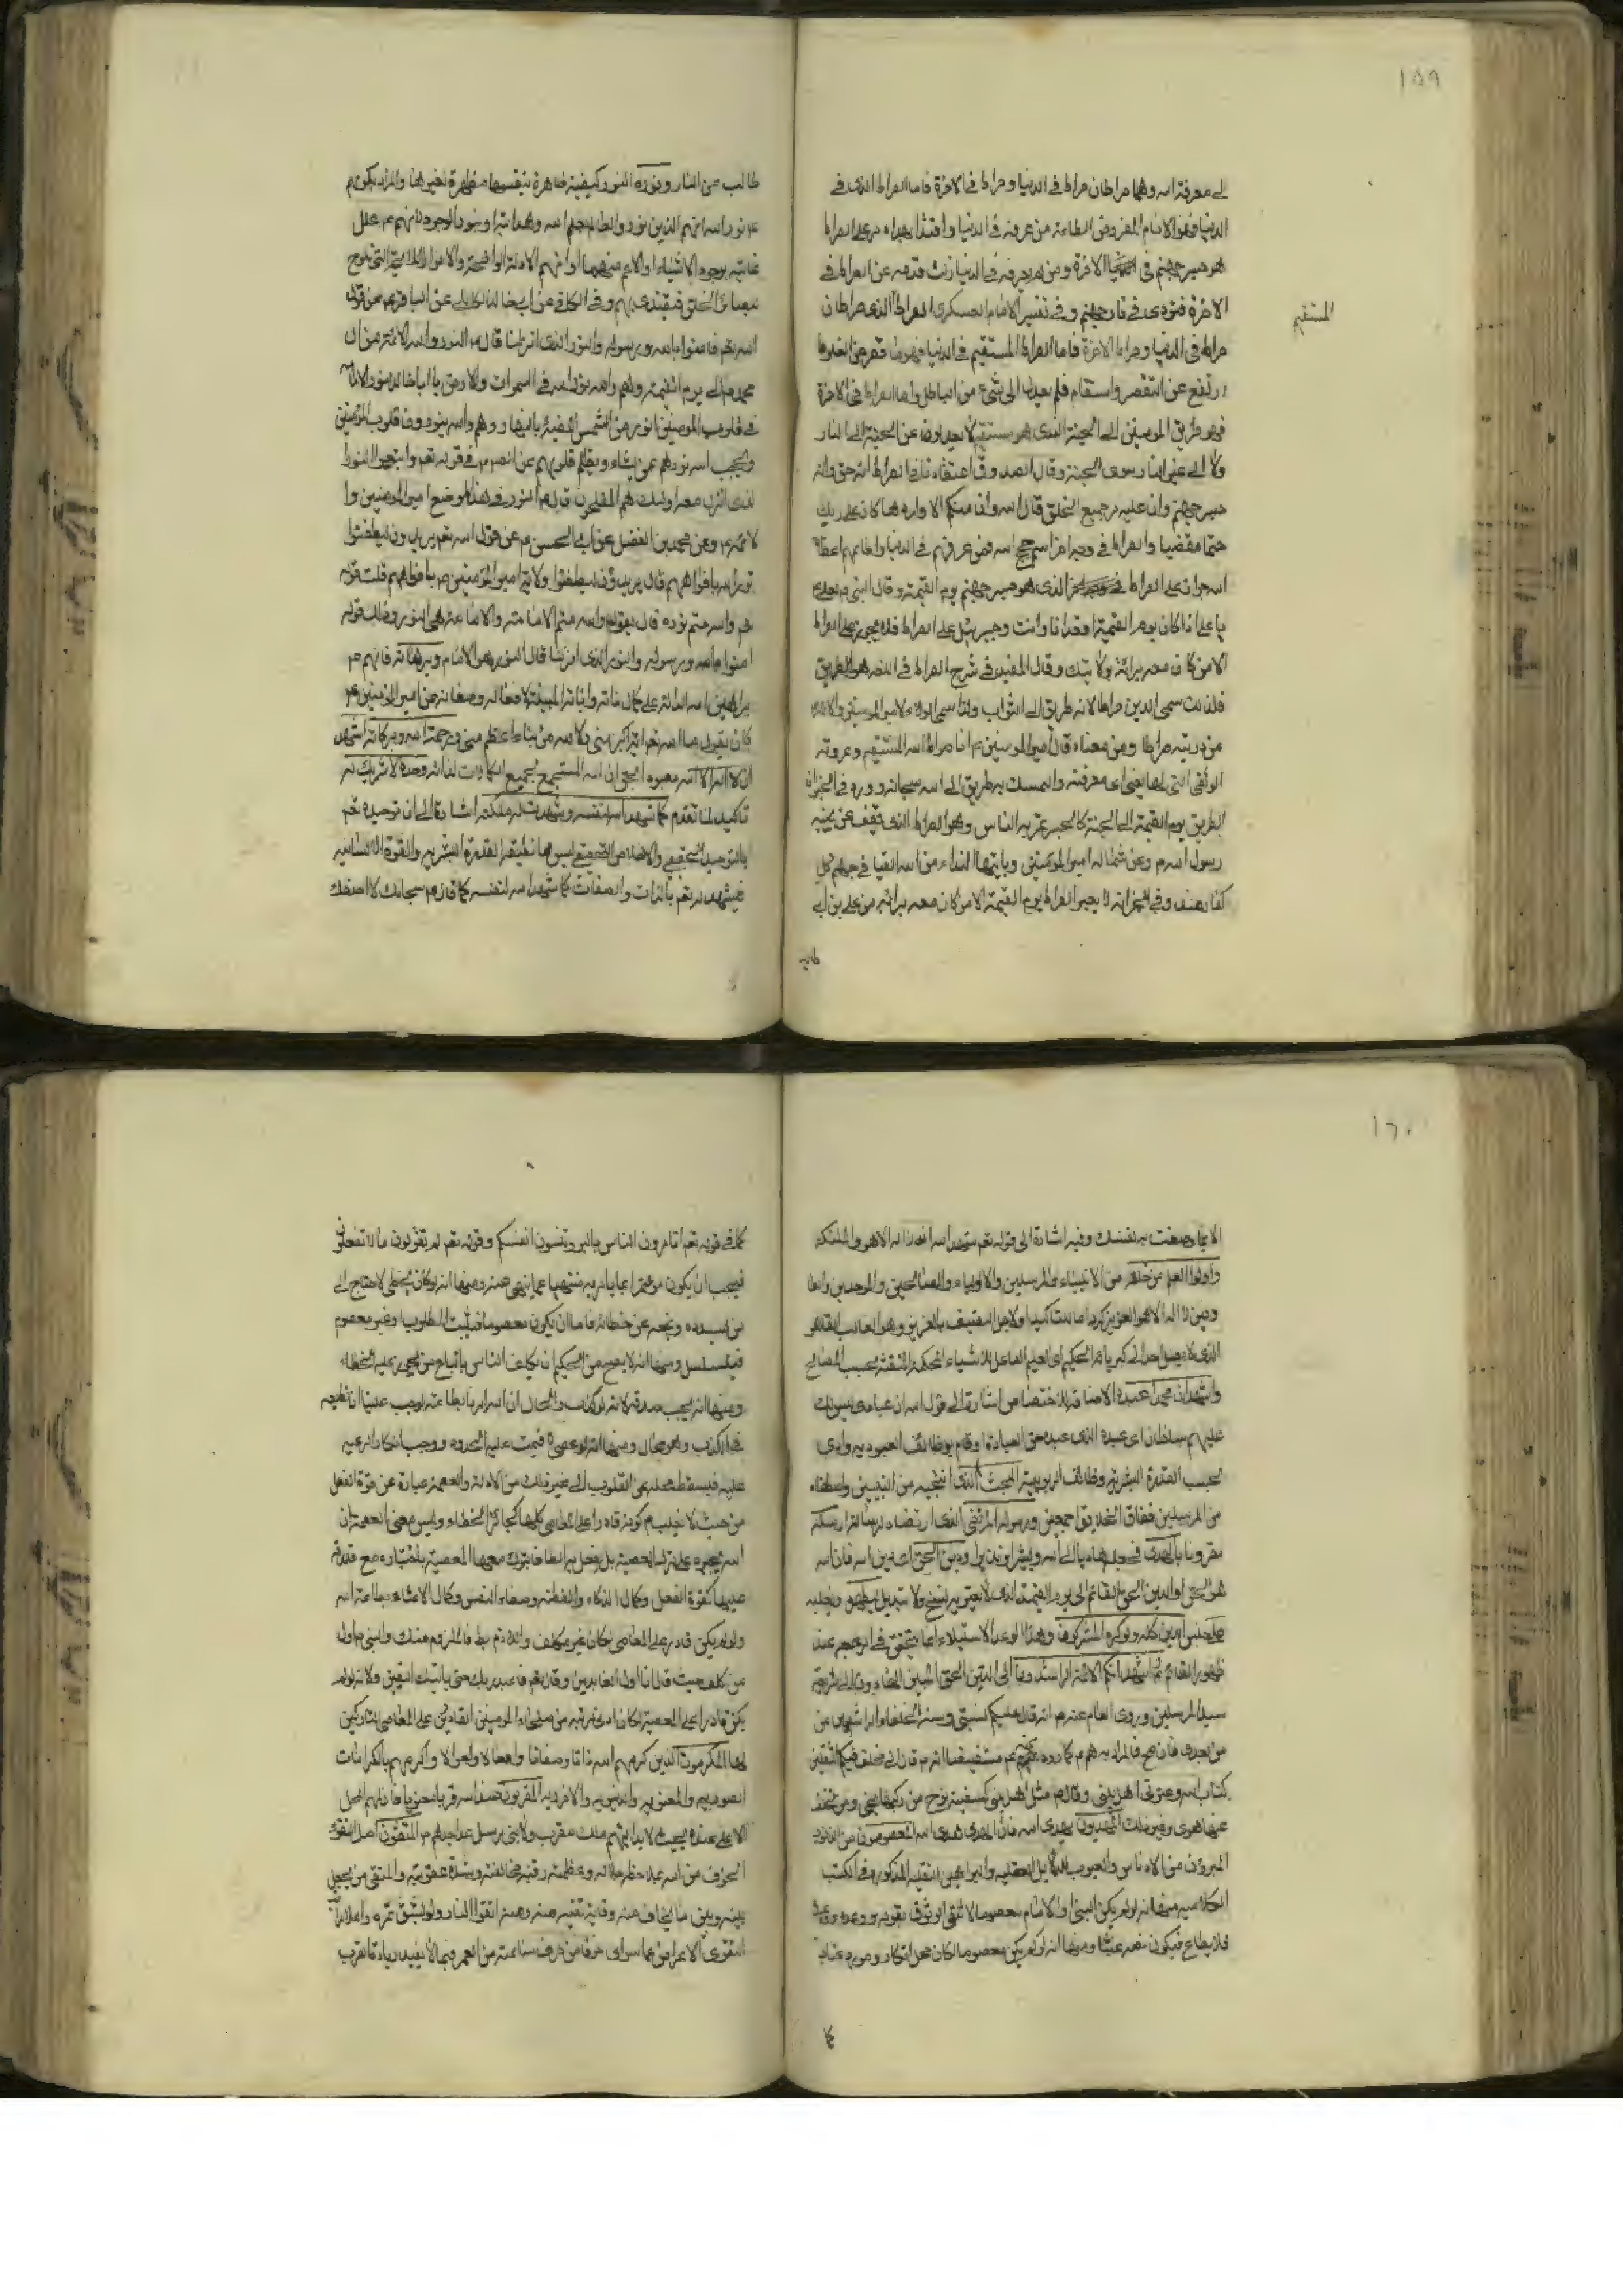 ١٥٩
الى معرفة اسه وهما صراطان صراط فى الدنيا وصراط فى الاخرة فاما الصراط الذى فى
الدنيا فهو الامام المفروض الطاعة من عرفه فى الدنيا واقتدا بهداه مر على الصراط
هو جسر جهنم فى الاخرة ومن لم يعرفه فى الدنيا زلت قدمه عن الصراط فى
الاخرة فتردى فى نار جهنم وفى تفسير الامام العسكرى الصراط الذى صراطان
المستقيم
صراط فى الدنيا وصراط الاخرة فاما الصراط المستقيم فى الدنيا فهو ما قصر عن الغلو وما
ارتفع عن التقصير واستقام فلم يعدل الى شئ من الباطل واما الصراط فى الاخرة
فهو طريق المومنين الى الجنة الذى هو مستقيم لا يعدلون عن الجنة الى النار
ولا الى غير النار سوى الجنة وقال الصدوق اعتقادنا فى الصراط انه حق وانه
جسر جهنم وان عليه مر جميع الخلق قال اسه وان منكم الا واردها كان على ربك
حتما مقضيا والصراط فى وجه اخر اسم حجج اسه فمن عرفهم فى الدنيا واطاعهم اعطاه
اسه جوازا على الصراط الذى هو جسر جهنم يوم القيمة وقال النبى ص لعلى ع
يا على اذا كان يوم القيمة اقعد انا وانت وجبرئيل على الصراط فلا يجوز على الصراط
الا من كان معه براءة بولايتك وقال المفيد فى شرح الصراط فى اللغة هو الطريق
فلذلك سمى الدين صراطا لانه طريق الى الثواب ولذا سمى الولاء لامير المومنين والائمة
من ذريته صراطا ومن معناه قال امير المومنين ع انا صراط اسه المستقيم وعروته
الوثقى التى لا انفصام لها يعنى ان معرفته والتمسك به طريق الى اسه سبحانه وورد فى الخبر ان
الطريق يوم القيمة الى الجنة كالجسر تمر به الناس وهو الصراط الذى يقف عن يمينه
رسول اسه ص وعن شماله امير المومنين وياتيهما النداء من اسه القيا فى جهنم كل
كفار عنيد وفى الخبر انه لا يعبر الصراط يوم القيمة الا من كان معه براءة من على بن ابى
طالب
طالب من النار ونوره النور كيفية ظاهرة بنفسها مظهرة لغيرها والمراد بكونهم
ع نور اسه انهم الذين نوروا العالم بعلم اسه وهدايته او بنور الوجود لانهم ع علل
غائية لوجود الاشياء او الاعم منهما او انهم الادلة الواضحة والانوار اللايحة التى تلوح
لبصائر الخلق فيقتدى بهم وفى الكافى عن ابى خالد الكابلى عن الباقر ع عن قول
اسه تعم فامنوا باسه ورسوله والنور الذى انزلنا قال ع النور واسه الائمة من ال
محمد ص الى يوم القيمة وهم واسه نور اسه فى السموات والارض يا ابا خالد لنور الامام
فى قلوب المومنين انور من الشمس المضيئة بالنهار وهم واسه ينورون قلوب المومنين
ويحجب اسه نورهم عمن يشاء ويظلم قلوبهم عن الص ع فى قوله تعم واتبعوا النور
الذى انزل معه اولئك هم المفلحون قال ع النور فى هذا الموضع امير المومنين وا
لائمة ع وعن محمد بن الفضل عن ابى الحسن ع عن قول اسه تعم يريدون ليطفئوا
نور اسه بافواههم قال يريدون ليطفئوا ولاية امير المومنين ع بافواههم قلت قوله
تعم واسه متم نوره قال يقول واسه متم الامامة والامامة هى النور وذلك قوله
امنوا باسه ورسوله والنور الذى انزلنا قال النور هو الامام وبرهانه فانهم ع
براهين اسه الدالة على كمال ذاته واياته المبينة لافعاله وصفاته عن امير المومنين ع
كان يقول ما اسه تعم اية اكبر منى ولا سه من بناء اعظم منى ورحمة اسه وبركاته اشهد
ان لا اله الا اسه معبود الحق ان اسه المستجمع لجميع الكمالات لذاته وحده لا شريك له
تاكيد لما تقدم كما شهد اسه لنفسه وشهدت له ملئكته اشارة الى ان توحيده تعم
بالتوحيد الحقيقى والاخلاص التحقيقى ليس مما تطيقه القدرة البشرية والقوة الانسانية
فيشهد له تعم بالذات والصفات كما شهد اسه لنفسه كما قال ع سبحانك لا احصى
١٦٠
الا بما وصفت به نفسك وفيه اشارة الى قوله تعم شهد اسه انه لا اله الا هو والملئكة
واولوا العلم من خلقه من الانبياء والمرسلين والاولياء والصالحين والموحدين
لا اله الا هو العزيز الحكيم بالعزيز وهو الغالب القاهر
الذى لا يصل احد الى كبريائه الحكيم اى العليم الفاعل للاشياء المحكمة المتقنة بحسب المصالح
واشهد ان محمدا عبده الاضافة للاختصاص اشارة الى قول اسه ان عبادى ليس لك
عليهم سلطان اى عبده الذى عبده حق العبادة وقام بوظائف العبودية وادى
بحسب القدرة البشرية وظائف الربوبية المنتجب الذى انتجبه من النبيين واصطفاه
من المرسلين ففاق الخلائق اجمعين ورسوله المرتضى الذى ارتضاه لرسالته ارسله
مقرونا بالهدى ودين الحق اى دين اسه فان اسه
هو الحق او الدين الحق القائم الى يوم القيمة الذى لا يعتريه نسخ ولا تبديل ليظهره ويغلبه
على الدين كله ولو كره المشركون وهذا الوعد الاستيلاء انما يتحقق فى عند
ظهور القائم ع واشهد انكم الائمة الراشدون الى الدين الحق المبين الهادون الى طريقة
سيد المرسلين وروى العامة عنه ص انه قال عليكم بسنتى وسنة الخلفاء الراشدين من
من بعدى فان صح فالمراد به هم ع كما ورد عنهم ع مستفيضا انه ص قال انى مخلف فيكم الثقلين
كتاب اسه وعترتى اهل بيتى وقال ص مثل اهل بيتى كسفينة نوح من ركبها نجى ومن تخلف
عنها هوى وغير ذلك المهديون بهدى اسه فان الهدى هدى اسه المعصومون من الذنوب
المبرؤن من الادناس والعيوب بالدلايل العقلية والبراهين النقلية المذكورة فى الكتب
الكلامية منها انه لو لم يكن النبى او الامام معصوما لانتفى الوثوق بقوله ووعده ووعيده
فلا يطاع فيكون نصبه عبثا ومنها انه لو لم يكن معصوما لكان محل انكار ومورد عتاب
كما
كما فى قوله تعم اتامرون الناس بالبر وتنسون انفسكم وقوله تعم لم تقولون ما لا تفعلون
فيجب ان يكون مؤتمرا بما يامر به منتهيا عما ينهى عنه ومنها انه لو كان يخطى لاحتاج الى
من يسدده ويمنعه عن خطائه فاما ان يكون معصوما فيثبت المطلوب او غير معصوم
فيتسلسل ومنها انه لا يصح من الحكيم ان يكلف الناس باتباع من يجوز عليه الخطاء
ومنها انه يجب صدقه لانه لو كذب والحال ان اسه امرنا بطاعته لوجب علينا اطاعته
فى الكذب وهو محال ومنها انه لو عصى لاقيمت عليه الحدود ووجب انكار الرعية
عليه فيسقط محله عن القلوب الى غير ذلك من الادلة والعصمة عبارة عن قوة العقل
من حيث لا يغلب مع كونه قادرا على المعاصى كلها كجائز الخطاء وليس معنى العصمة ان
اسه يجبره على ترك المعصية بل يفعل به الطافا يترك معها المعصية باختياره مع قدرته
عليها كقوة العقل وكمال الذكاء والفطنة وصفاء النفس وكمال الاعتناء بطاعة اسه
ولو لم يكن قادرا على المعاصى لكان غير مكلف واللازم بط فالملزوم مثله والنبى ص اول
من كلف حيث قال انا اول العابدين وقال تعم فاعبد ربك حتى ياتيك اليقين ولانه لو لم
يكن قادرا على المعصية لكان ادنى مرتبة من صلحاء المومنين القادرين على المعاصى التاركين
لها المكرمون الذين كرمهم اسه ذاتا وصفاتا وافعالا واقوالا واكرمهم بالكرامات
الصورية والمعنوية والدنيوية والاخروية المقربون عند اسه قربا معنويا فان لهم المحل
الاعلى عنده بحيث لا يدانيهم ملك مقرب ولا نبى مرسل عدا جدهم ص المتقون اصل التقوى
الخوف من اسه بملاحظة جلاله وعظمته ورقبة مخالفته وشدة عقوبته والمتقى من يجعل
بينه وبين ما يخاف منه وقاية تقيه منه ومنه اتقوا النار ولو بشق تمرة واعلا مراتب
التقوى الاعراض عما سوى اسه خوفا من صرف ساعة من العمر فيما لا يفيد زيادة القرب